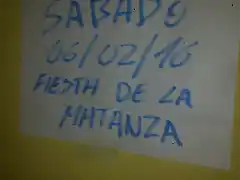 SABADO
06/02/16
FIESTA DE LA
MATANZA